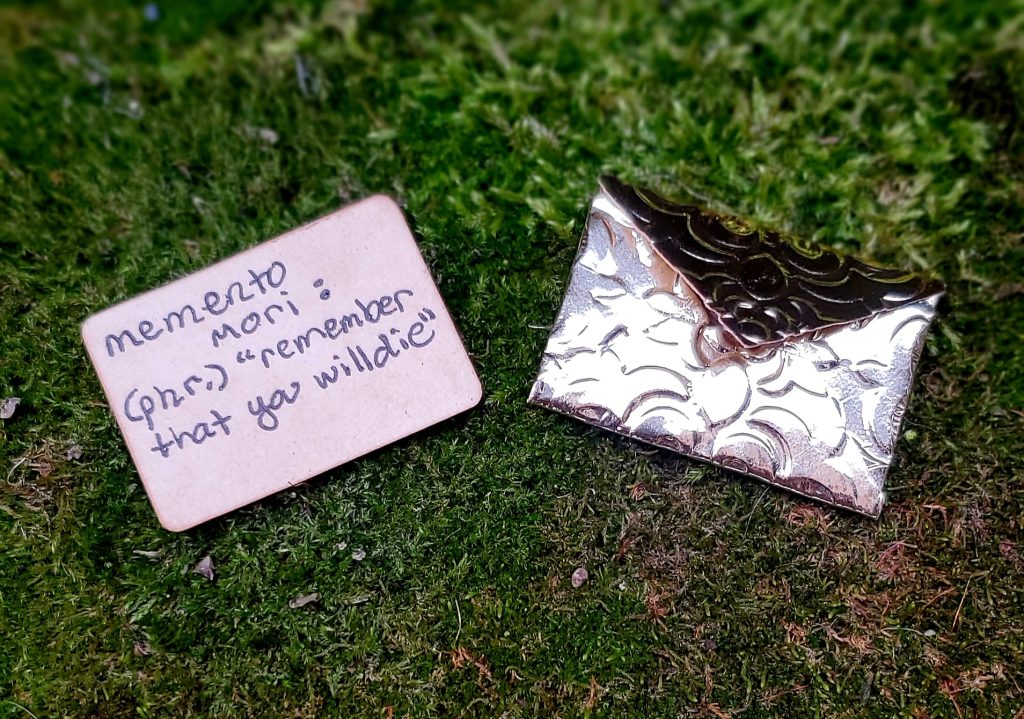 memento
Mori :
(phr.) "remember
that you will die"